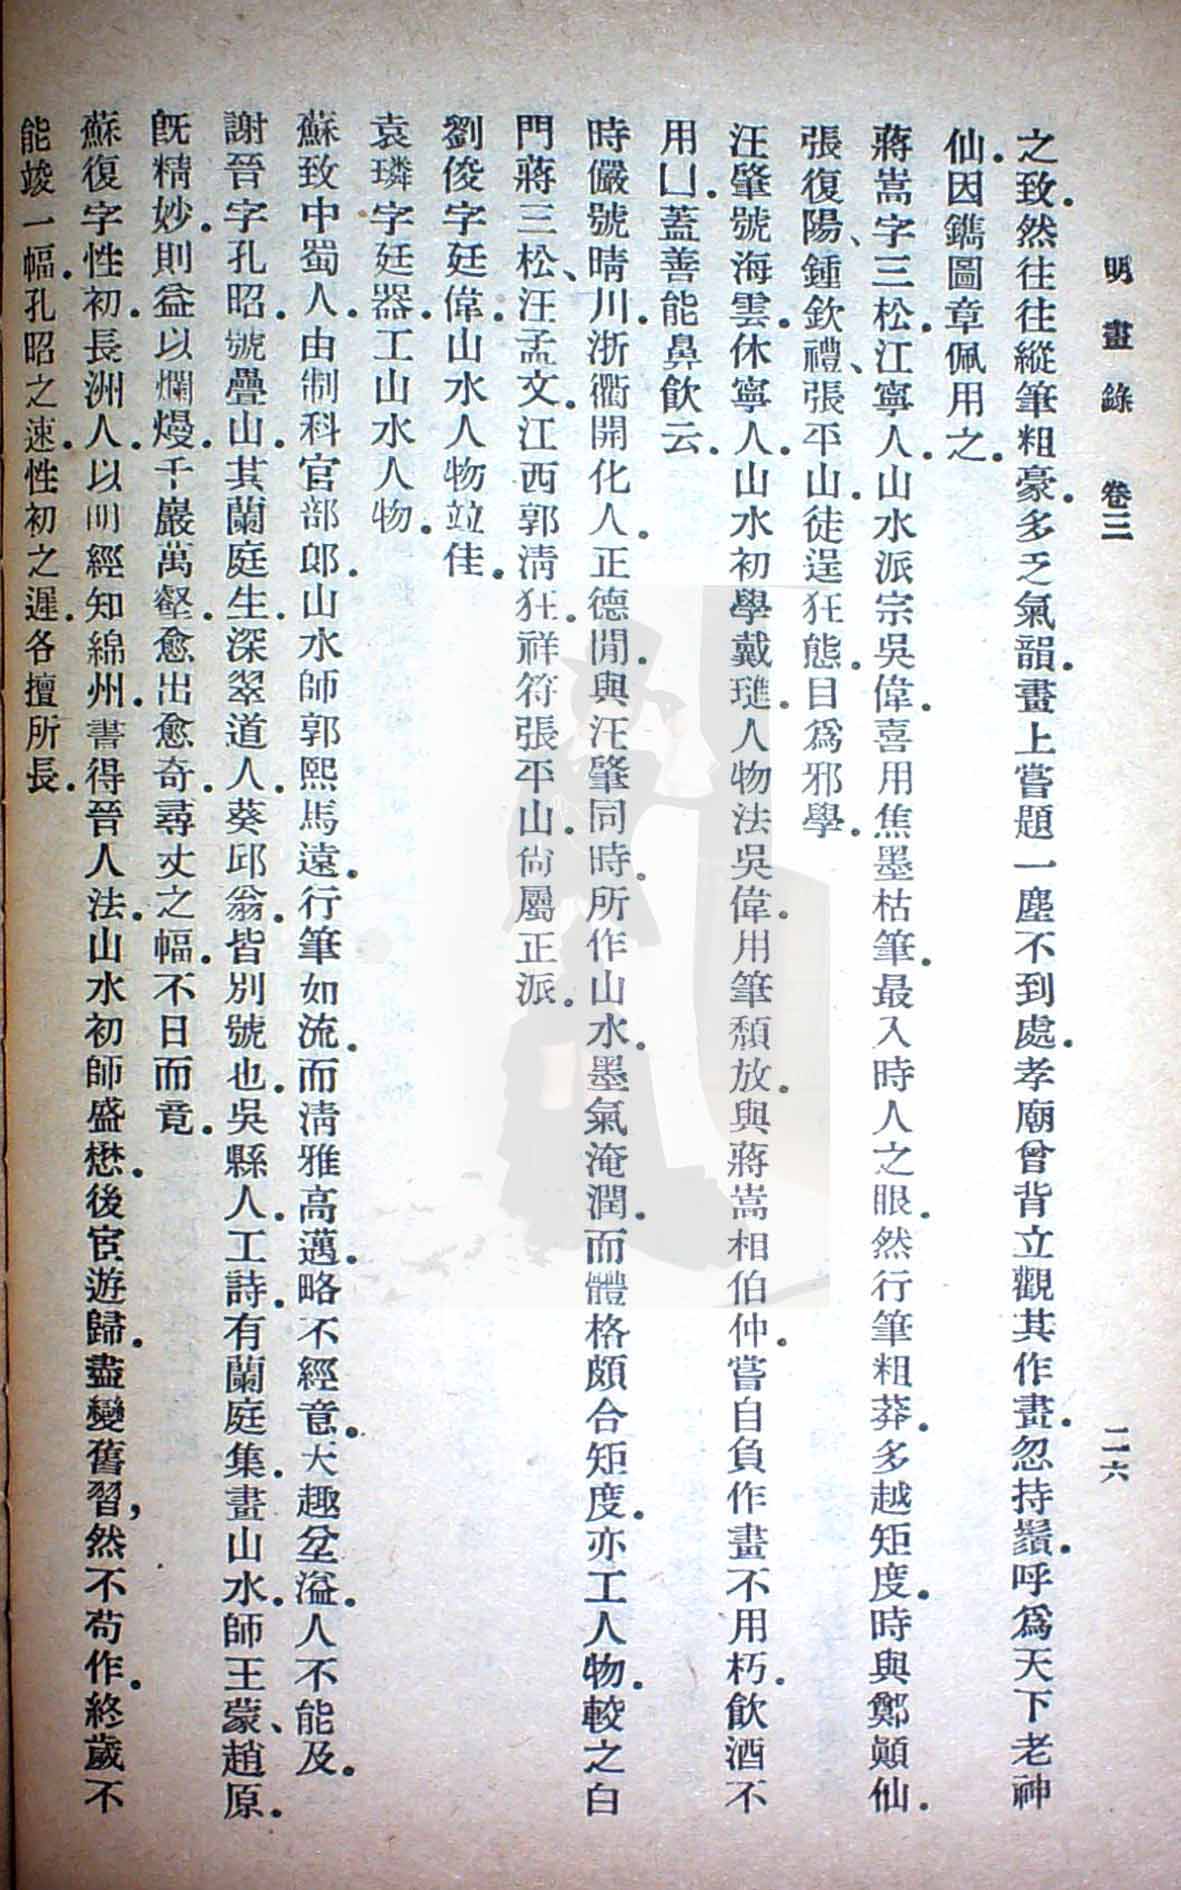 明畫錄 卷三 二六
之致．然往往縱筆粗豪．多乏氣韻．畫上嘗題一塵不到處．孝廟曾背立觀其作畫．忽持鬚．呼爲天下老神
仙．因鐫圖章佩用之．
蔣嵩字三松．江寧人．山水派宗吳偉．喜用焦墨枯筆．最入時人之眼．然行筆粗莽．多越矩度．時與鄭顚仙．
張復陽、鍾欽禮、張平山．徒逞狂態．目爲邪學．
汪肇號海雲．休寧人．山水初學戴璡．人物法吳偉．用筆頹放．與蔣嵩相伯仲．嘗自負作畫不用朽．飮酒不
用凵．蓋善能鼻飮云．
時儼號晴川．浙衢開化人．正德閒．與汪肇同時．所作山水．墨氣淹潤．而體格頗合矩度．亦工人物．較之白
門蔣三松、汪孟文．江西郭淸狂．祥符張平山．尙屬正派．
劉俊字廷偉．山水人物竝佳．
袁璘字廷器．工山水人物．
蘇致中蜀人．由制科官部郞．山水師郭熙馬遠．行筆如流．而淸雅高邁．略不經意．天趣坌溢．人不能及．
謝晉字孔昭．號疊山．其蘭庭生．深翠道人．葵邱翁．皆別號也．吳縣人．工詩．有蘭庭集．畫山水．師王蒙、趙原．
旣精妙．則益以爛熳．千巖萬壑．愈出愈奇．尋丈之幅．不日而竟．
蘇復字性初．長洲人．以明經知綿州．書得晉人法．山水初師盛懋．後宦遊歸．盡變舊習，然不苟作．終歲不
能竣一幅．孔昭之速．性初之遲．各擅所長．